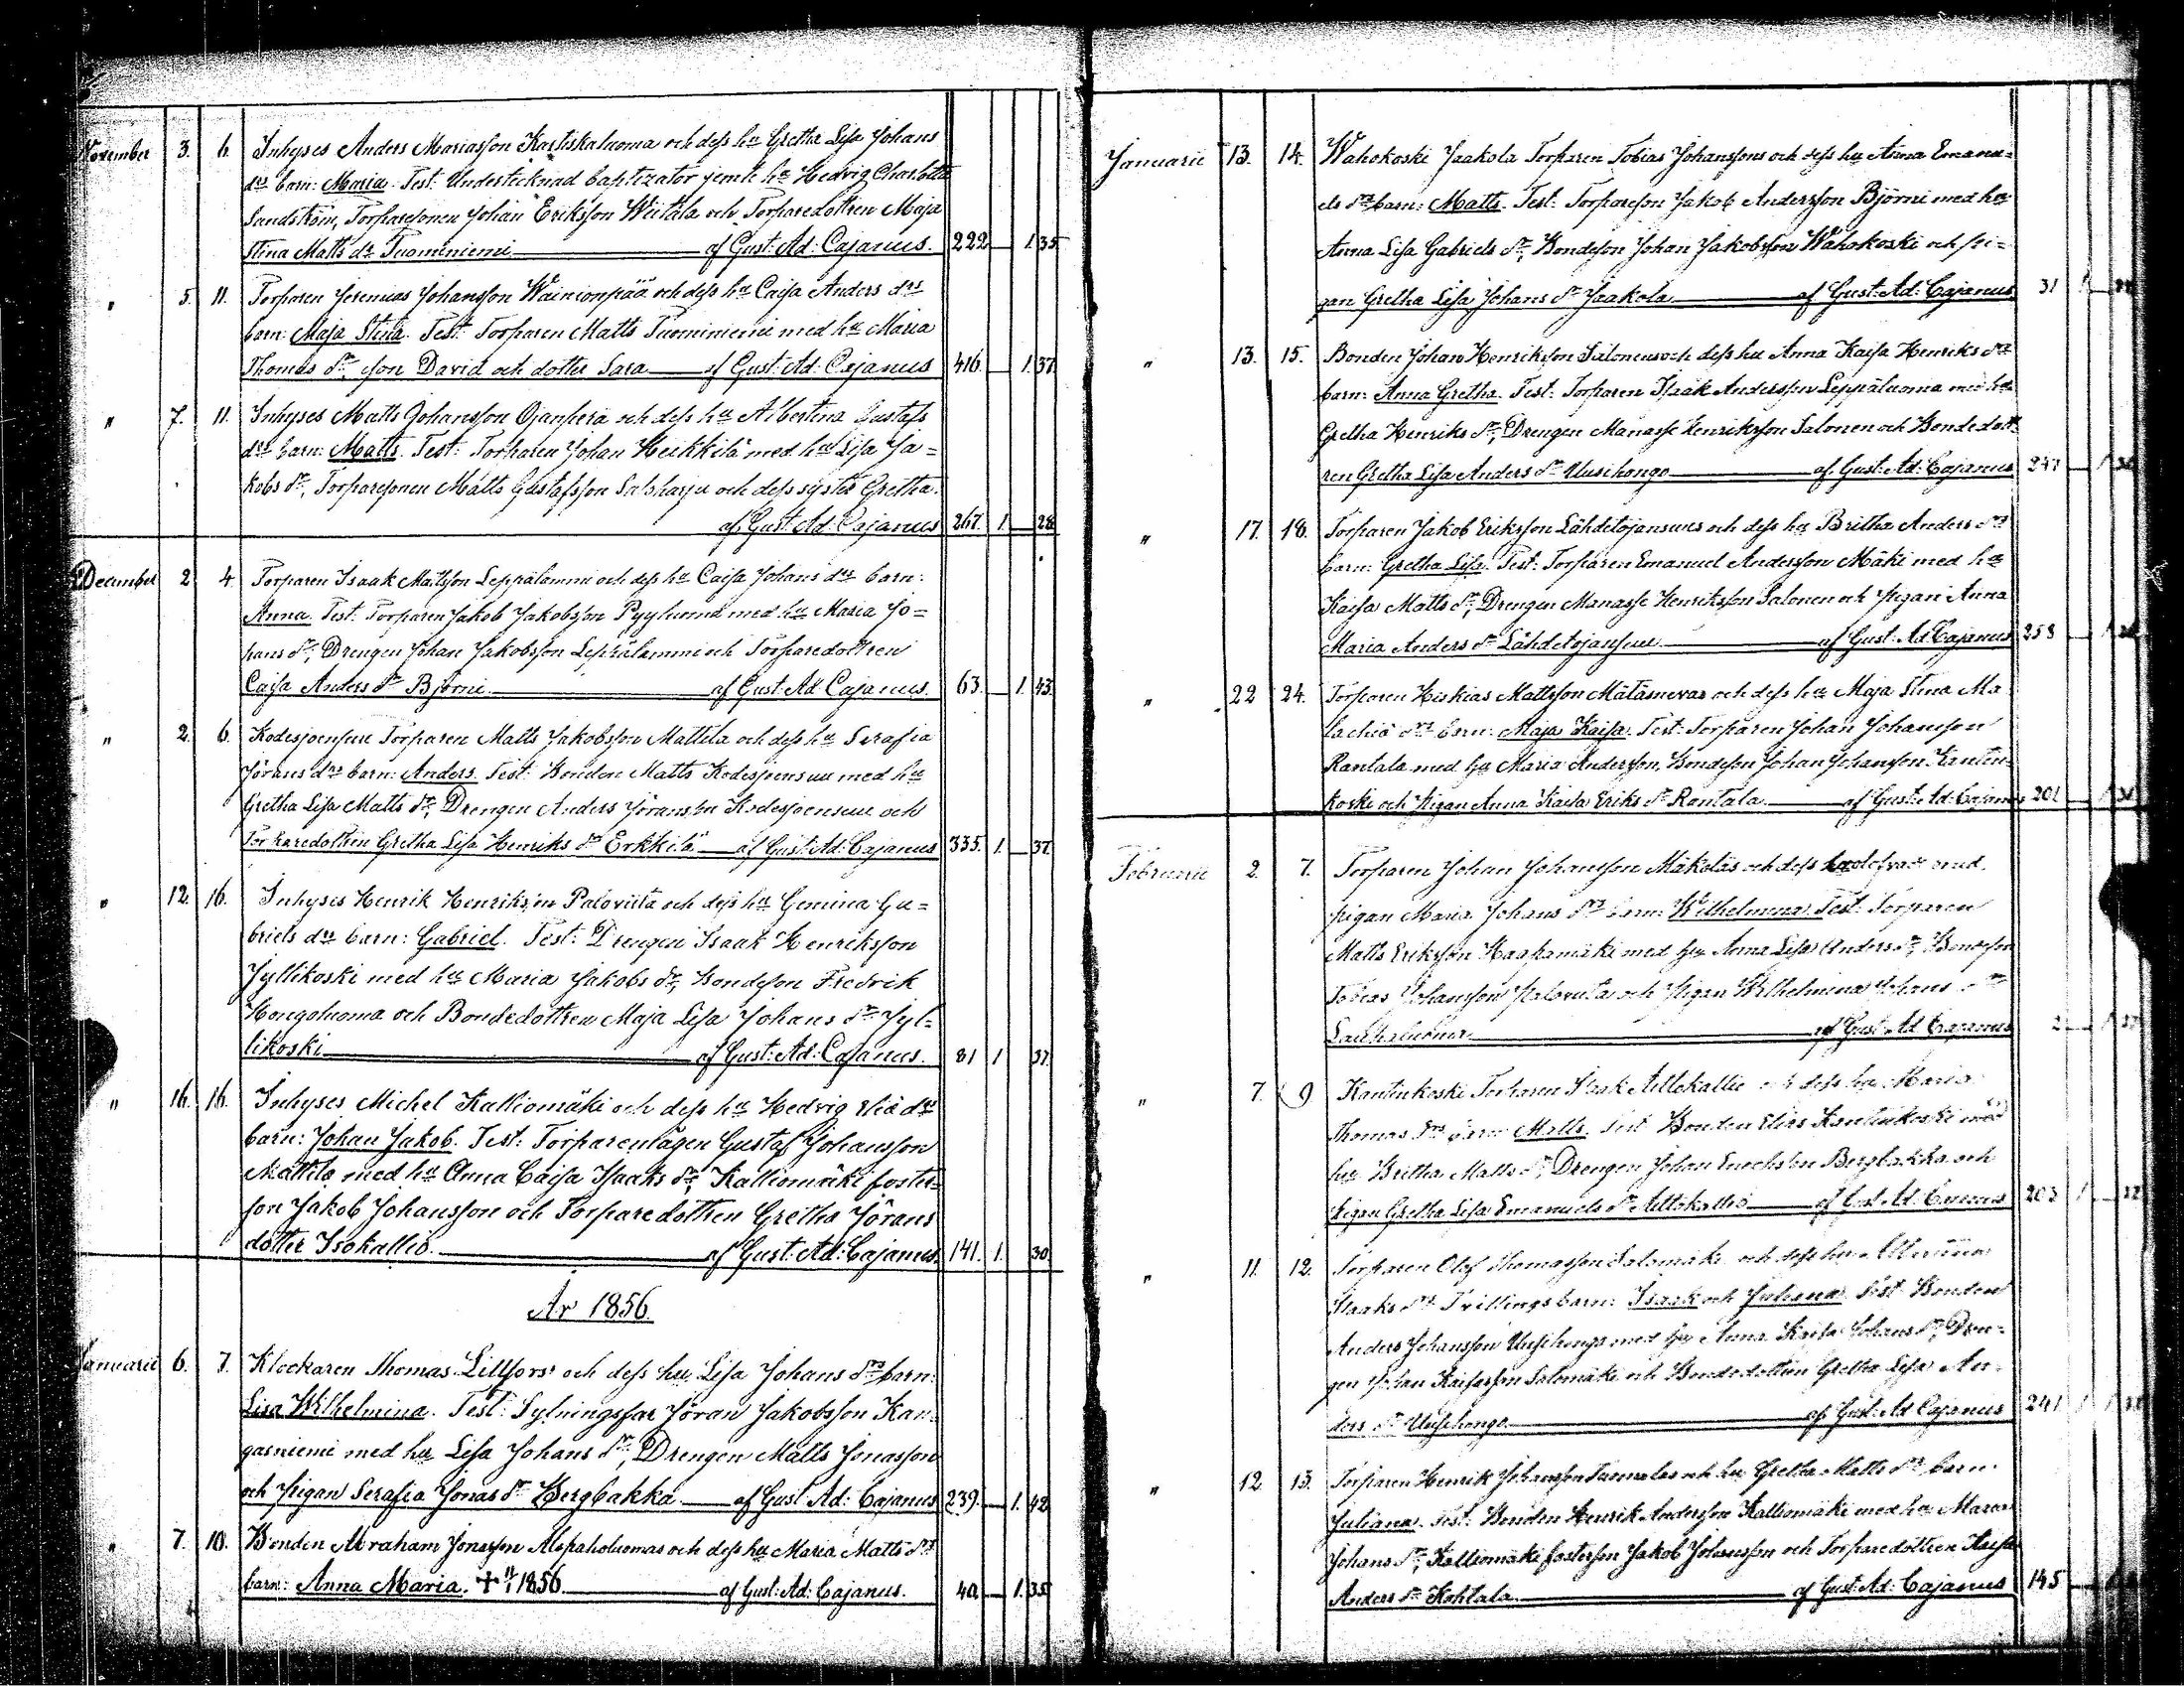 November 3. 6. Inhyses Anders Mariasson Kartiskaluoma och dess hu Gretha Lisa Johans
drs barn: Maria. Test: Undertecknad baptizator jemte hu Hedvig Charlotta
Sandström, Torparesonen Johan Eriksson Wiitala och Torparedottren Maja
Stina Matts dr Tuominiemi af Gust: Ad: Cajanus. 222 — 1. 35.
" 5. 11. Torparen Jeremias Johansson Wainionpää och dess hu Caisa Anders drs
barn: Maja Stina. Test: Torparen Matts Tuominiemi med hu Maria
Thomas dr, son David och dotter Sara af Gust: Ad: Cajanus 416. — 1. 37.
" 7. 11. Inhyses Matts Johansson Ojanperä och dess hu Albertina Gustafs
drs barn: Matts. Test: Torparen Johan Heikkilä med hu Lisa Ja=
kobs dr, Torparesonen Matts Gustafsson Saloharju och dess syster Gretha.
af Gust: Ad: Cajanus 267. 1. — 28.
December 2. 4. Torparen Isaak Mattsson Leppälammi och dess hu Caisa Johans drs barn:
Anna. Test: Torparen Jakob Jakobsson Pyyluoma med hu Maria Jo=
hans dr, Drengen Johan Jakobsson Leppälammi och Torparedottren
Caisa Anders dr Björni af Gust: Ad: Cajanus. 63. — 1. 43.
" 2. 6. Kodesjoensuu Torparen Matts Jakobsson Mattila och dess hu Serafia
Jörans drs barn: Anders. Test: Bonden Matts Kodesjoensuu med hu
Gretha Lisa Matts dr, Drengen Anders Jöransson Kodesjoensuu och
Torparedottren Gretha Lisa Henriks dr Erkkilä af Gust: Ad: Cajanus 335. 1. — 37.
" 12. 16. Inhyses Henrik Henriksson Paloviita och dess hu Gemina Ga=
briels drs barn: Gabriel. Test: Drengen Isaak Henriksson
Jyllikoski med hu Maria Jakobs dr, Bondeson Fredrik
Hongoluoma och Bondedottren Maja Lisa Johans dr Jyl=
likoski af Gust: Ad: Cajanus. 81 1 37.
" 16. 16. Inhyses Michel Kalliomäki och dess hu Hedvig drs
barn: Johan Jakob. Test: Torparemågen Gustaf Johansson
Mattila med hu Anna Caisa Isaaks dr, Kalliomäki foster=
son Jakob Johansson och Torparedottren Gretha Jörans
dotter Isokallio. af Gust: Ad: Cajanus. 141. 1. 30.
År 1856.
Januarii 6. 7. Klockaren Thomas Lillfors och dess hu Lisa Johans drs barn:
Lisa Wilhelmina. Test: Sytningsfar Jöran Jakobsson Kan=
gasniemi med hu Lisa Johans dr, Drengen Matts Jonasson
och Pigan Serafia Jonas dr Bergbakka af Gust: Ad: Cajanus 239. — 1. 42
" 7. 10. Bonden Abraham Jonasson Alapaholuomas och dess hu Maria Matts drs
barn: Anna Maria. † 1856. af Gust: Ad: Cajanus. 40. — 1. 35.
Januarii 13. 14. Wahokoski Jaakola Torparen Tobias Johanssons och dess hu Anna Emanu=
els drs barn: Matts. Test: Torpareson Jakob Andersson Björni med hu
Anna Lisa Gabriels dr, Bondeson Johan Jakobsson Wahokoski och pi=
gan Gretha Lisa Johans dr Jaakola af Gust: Ad: Cajanus 31 1
" 13. 15. Bonden Johan Henriksson Salonens och dess hu Anna Kaisa Henriks drs
barn: Anna Gretha. Test: Torparen Isaak Andersson Leppäluoma med hu
Gretha Henriks dr, Drengen Manasse Henriksson Salonen och Bondedott=
ren Gretha Lisa Anders dr Uusihongo af Gust: Ad: Cajanus 247 — 1
" 17. 18. Torparen Jakob Eriksson Lähdetojansuus och dess hu Britha Anders drs
barn: Gretha Lisa. Test: Torparen Emanuel Andersson Mäki med hu
Kaisa Matts dr, Drengen Manasse Henriksson Salonen och Pigan Anna
Maria Anders dr Lähdetojansuu af Gust: Ad: Cajanus 258 — 1
" 22 24. Torparen Hiskias Mattsson Mätäsnevas och dess hu Maja Stina Ma
lachiæ drs barn: Maja Kaisa. Test: Torparen Johan Johansson
Rantala med hu Maria Andersson, Bondeson Johan Johansson Kantin=
koski och Pigan Anna Kaisa Eriks dr Rantala af Gust: Ad: Cajanus 201 — 1
Februarii 2. 7. Torparen Johan Johansson Mäkeläs och dess med
pigan Maria Johans drs barn: Wilhelmina. Test: Torparen
Matts Eriksson Haapamäki med hu Anna Lisa Anders dr, Bondeson
Tobias Johansson Paloviita och Pigan Wilhelmina Johans dr
af Gust: Ad: Cajanus
" 7. 9 Kantinkoski Torparen Isak Aittokallio och dess hu Maria
Thomas drs barn Matts. Test Bonden Elias Kantinkoski med
hu Britha Matts dr, Drengen Johan Enochsson Bergbakka och
Pigan Gretha Lisa Emanuels dr Aittokallio af Gust: Ad: Cajanus 203 1
" 11. 12. Torparen Olof Thomasson Salomäki och dess hu Albertina
Isaaks drs Tvillingsbarn: Isaak och Juliana. Test: Bonden
Anders Johansson Uusihongo med hu Anna Kaisa Johans dr, Dren=
gen Johan Kaisasson Salomäki och Bondedottren Gretha Lisa An=
ders dr Uusihongo af Gust: Ad: Cajanus 241
" 12. 13. Torparen Henrik Johansson Tuomalas och hu Gretha Matts drs barn
Juliana. Test: Bonden Henrik Andersson Kalliomäki med hu Maria
Johans dr, Kalliomäki fosterson Jakob Johansson och Torparedottren Kaisa
Anders dr Kohtala. af Gust: Ad: Cajanus 145